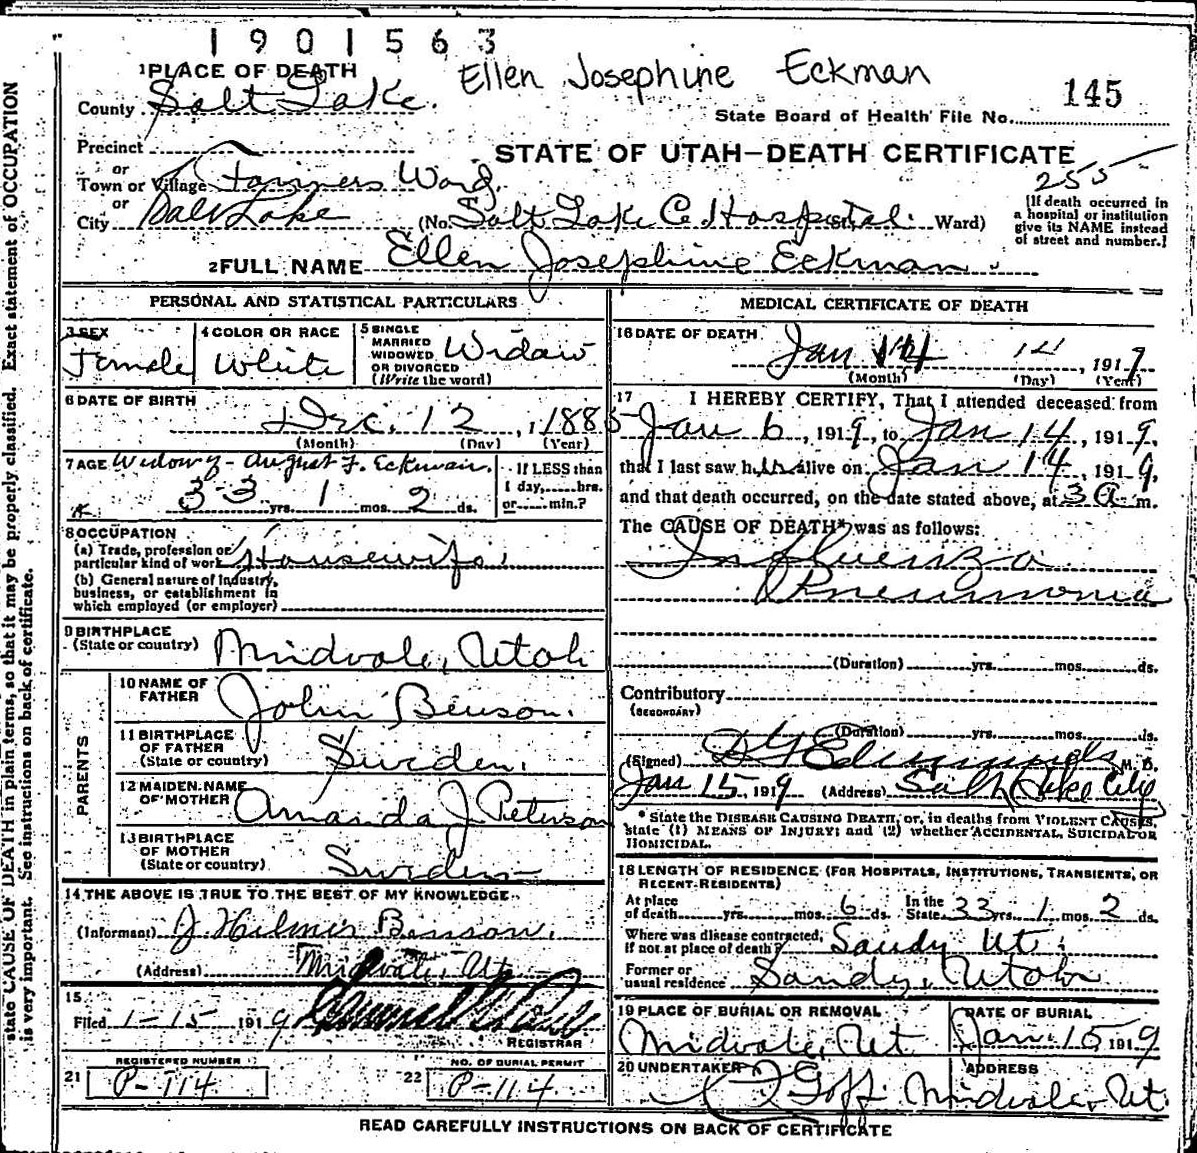 1901563
Ellen Josephine Eckman
1 PLACE OF DEATH
County Salt Lake.
145
State Board of Health File No.
Precinct
STATE OF UTAH—DEATH CERTIFICATE
or
Town or Village Farmers Ward.
255
or
City Salt Lake (No. Salt Lake Co. Hospital. St. Ward)
[If death occurred in
a hospital or institution
give its NAME instead
of street and number.]
2 FULL NAME Ellen Josephine Eckman.
PERSONAL AND STATISTICAL PARTICULARS
3 SEX
Female
4 COLOR OR RACE
White
5 SINGLE
MARRIED
WIDOWED
OR DIVORCED
(Write the word)
Widow
6 DATE OF BIRTH
Dec. 12, 1885
(Month) (Day) (Year)
7 AGE Widow of - August F. Eckman.
33 yrs. 1 mos. 2 ds.
If LESS than
1 day, hrs.
or min.?
8 OCCUPATION
(a) Trade, profession or
particular kind of work Housewife.
(b) General nature of Industry,
business, or establishment in
which employed (or employer)
9 BIRTHPLACE
(State or country) Midvale, Utah
PARENTS
10 NAME OF
FATHER John Benson.
11 BIRTHPLACE
OF FATHER
(State or country) Sweden.
12 MAIDEN NAME
OF MOTHER Amanda J. Peterson
13 BIRTHPLACE
OF MOTHER
(State or country) Sweden
14 THE ABOVE IS TRUE TO THE BEST OF MY KNOWLEDGE
(Informant) J. Hilmer Benson.
(Address) Midvale, Ut
15
Filed 1-15 1919
REGISTRAR
REGISTERED NUMBER
21 P-114
NO. OF BURIAL PERMIT
22 P-114
MEDICAL CERTIFICATE OF DEATH
16 DATE OF DEATH
Jan 14 14, 1919
(Month) (Day) (Year)
17 I HEREBY CERTIFY, That I attended deceased from
Jan 6, 1919, to Jan 14, 1919,
that I last saw her alive on Jan 14, 1919,
and that death occurred, on the date stated above, at 3 a m.
The CAUSE OF DEATH* was as follows:
Influenza
Pneumonia
(Duration) yrs. mos. ds.
Contributory
(SECONDARY)
(Duration) yrs. mos. ds.
(Signed) Edmunds M. D.
Jan 15, 1919 (Address) Salt Lake City
* State the DISEASE CAUSING DEATH, or, in deaths from VIOLENT CAUSES,
state (1) MEANS OF INJURY; and (2) whether ACCIDENTAL, SUICIDAL OR
HOMICIDAL.
18 LENGTH OF RESIDENCE (FOR HOSPITALS, INSTITUTIONS, TRANSIENTS, OR
RECENT RESIDENTS)
At place
of death yrs. mos. 6 ds.
In the
State 33 yrs. 1 mos. 2 ds.
Where was disease contracted,
if not at place of death? Sandy Ut.
Former or
usual residence Sandy, Utah
19 PLACE OF BURIAL OR REMOVAL
Midvale, Ut
DATE OF BURIAL
Jan. 15, 1919
20 UNDERTAKER
Goff
ADDRESS
Midvale, Ut.
READ CAREFULLY INSTRUCTIONS ON BACK OF CERTIFICATE
state CAUSE OF DEATH in plain terms, so that it may be properly classified. Exact statement of OCCUPATION
is very important. See instructions on back of certificate.